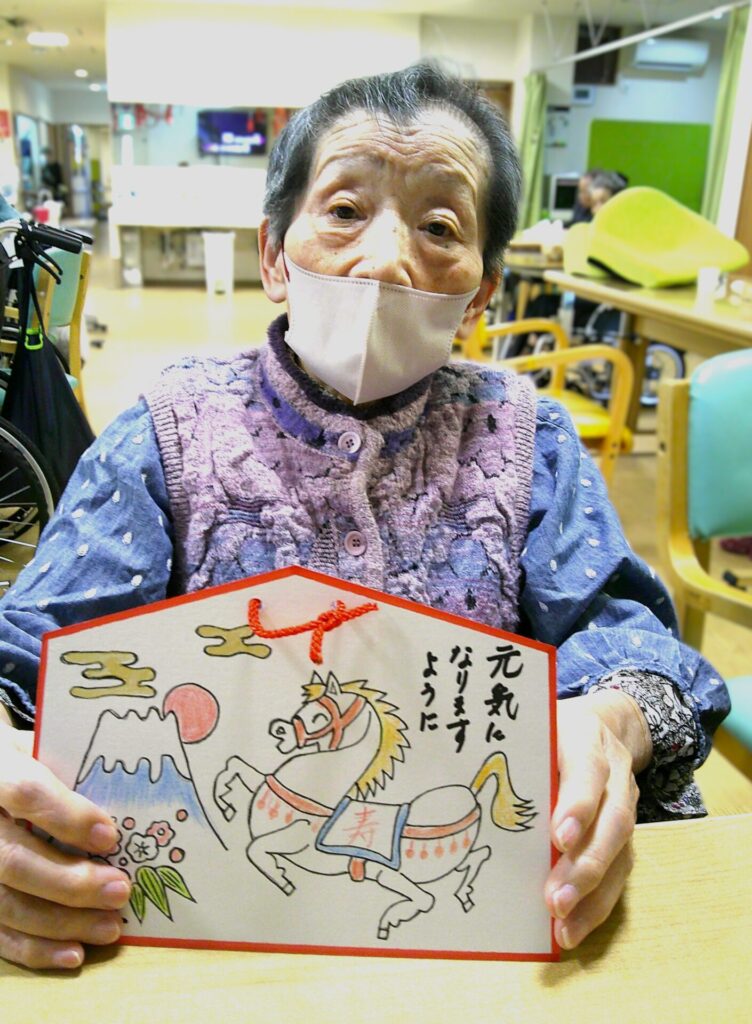 元気に
なります
ように
寿